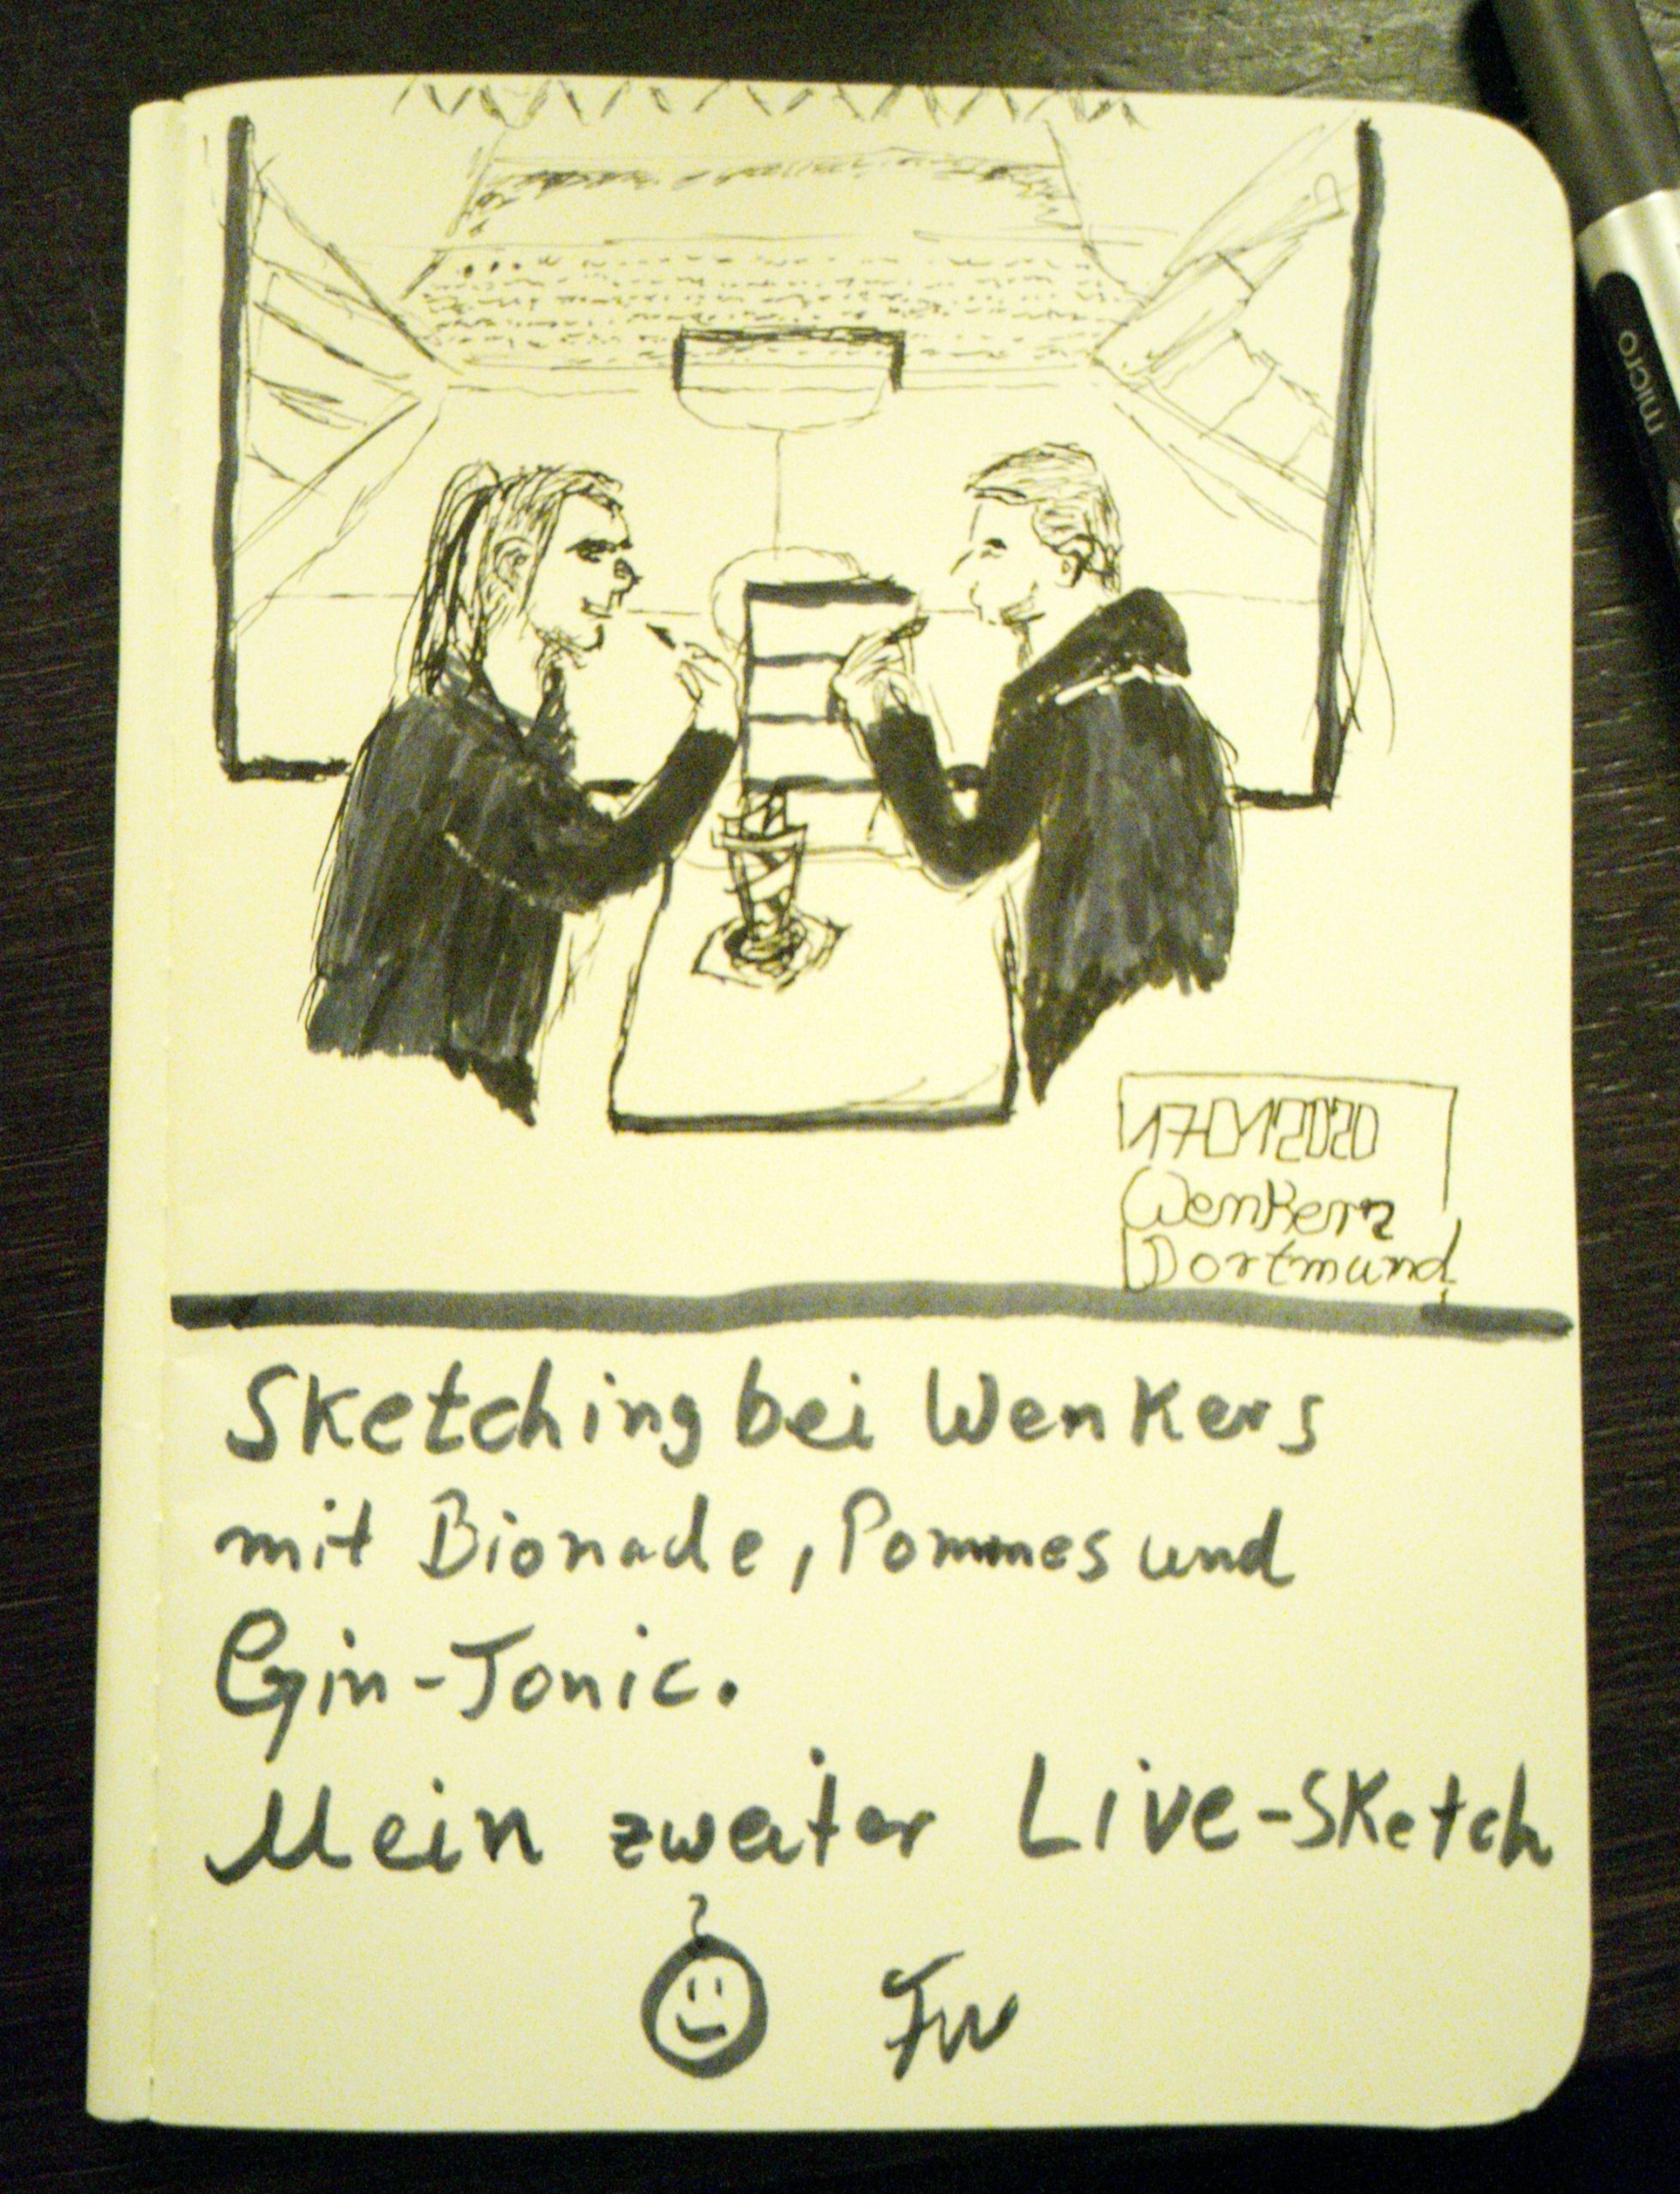 micro
17012020
Wenkers
Dortmund
Sketching bei Wenkers
mit Bionade, Pommes und
Gin-Tonic.
Mein zweiter Live-Sketch
FW